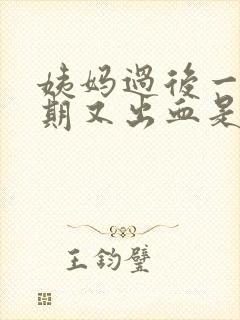 姨妈过後一
期又出血是
王钧璧